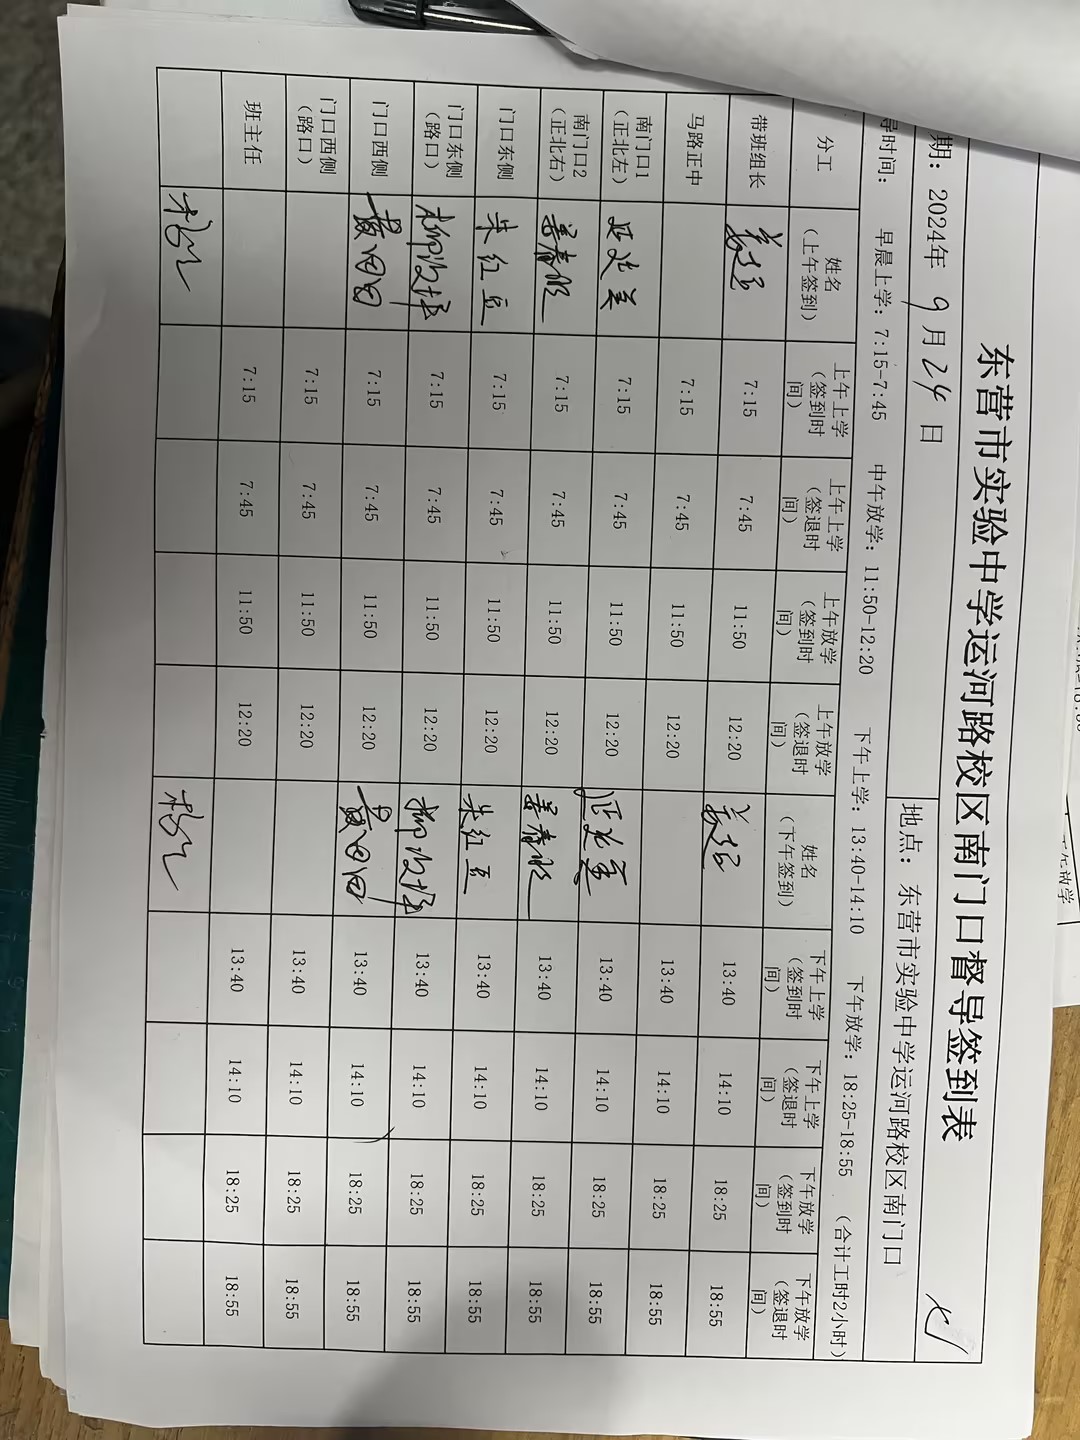 东营市实验中学运河路校区南门口督导签到表
期：2024年 9 月 24 日 地点：东营市实验中学运河路校区南门口
导时间： 早晨上学：7:15-7:45 中午放学：11:50-12:20 下午上学：13:40-14:10 下午放学：18:25-18:55 （合计工时2小时）
分工 姓名（上午签到） 上午上学（签到时间） 上午上学（签退时间） 上午放学（签到时间） 上午放学（签退时间） 姓名（下午签到） 下午上学（签到时间） 下午上学（签退时间） 下午放学（签到时间） 下午放学（签退时间）
带班组长 7:15 7:45 11:50 12:20 13:40 14:10 18:25 18:55
马路正中 7:15 7:45 11:50 12:20 13:40 14:10 18:25 18:55
南门口1（正北左） 7:15 7:45 11:50 12:20 13:40 14:10 18:25 18:55
南门口2（正北右） 姜春 7:15 7:45 11:50 12:20 姜春 13:40 14:10 18:25 18:55
门口东侧 朱红豆 7:15 7:45 11:50 12:20 朱红豆 13:40 14:10 18:25 18:55
门口东侧（路口） 柳 7:15 7:45 11:50 12:20 柳 13:40 14:10 18:25 18:55
门口西侧 7:15 7:45 11:50 12:20 13:40 14:10 18:25 18:55
门口西侧（路口） 7:15 7:45 11:50 12:20 13:40 14:10 18:25 18:55
班主任 7:15 7:45 11:50 12:20 13:40 14:10 18:25 18:55